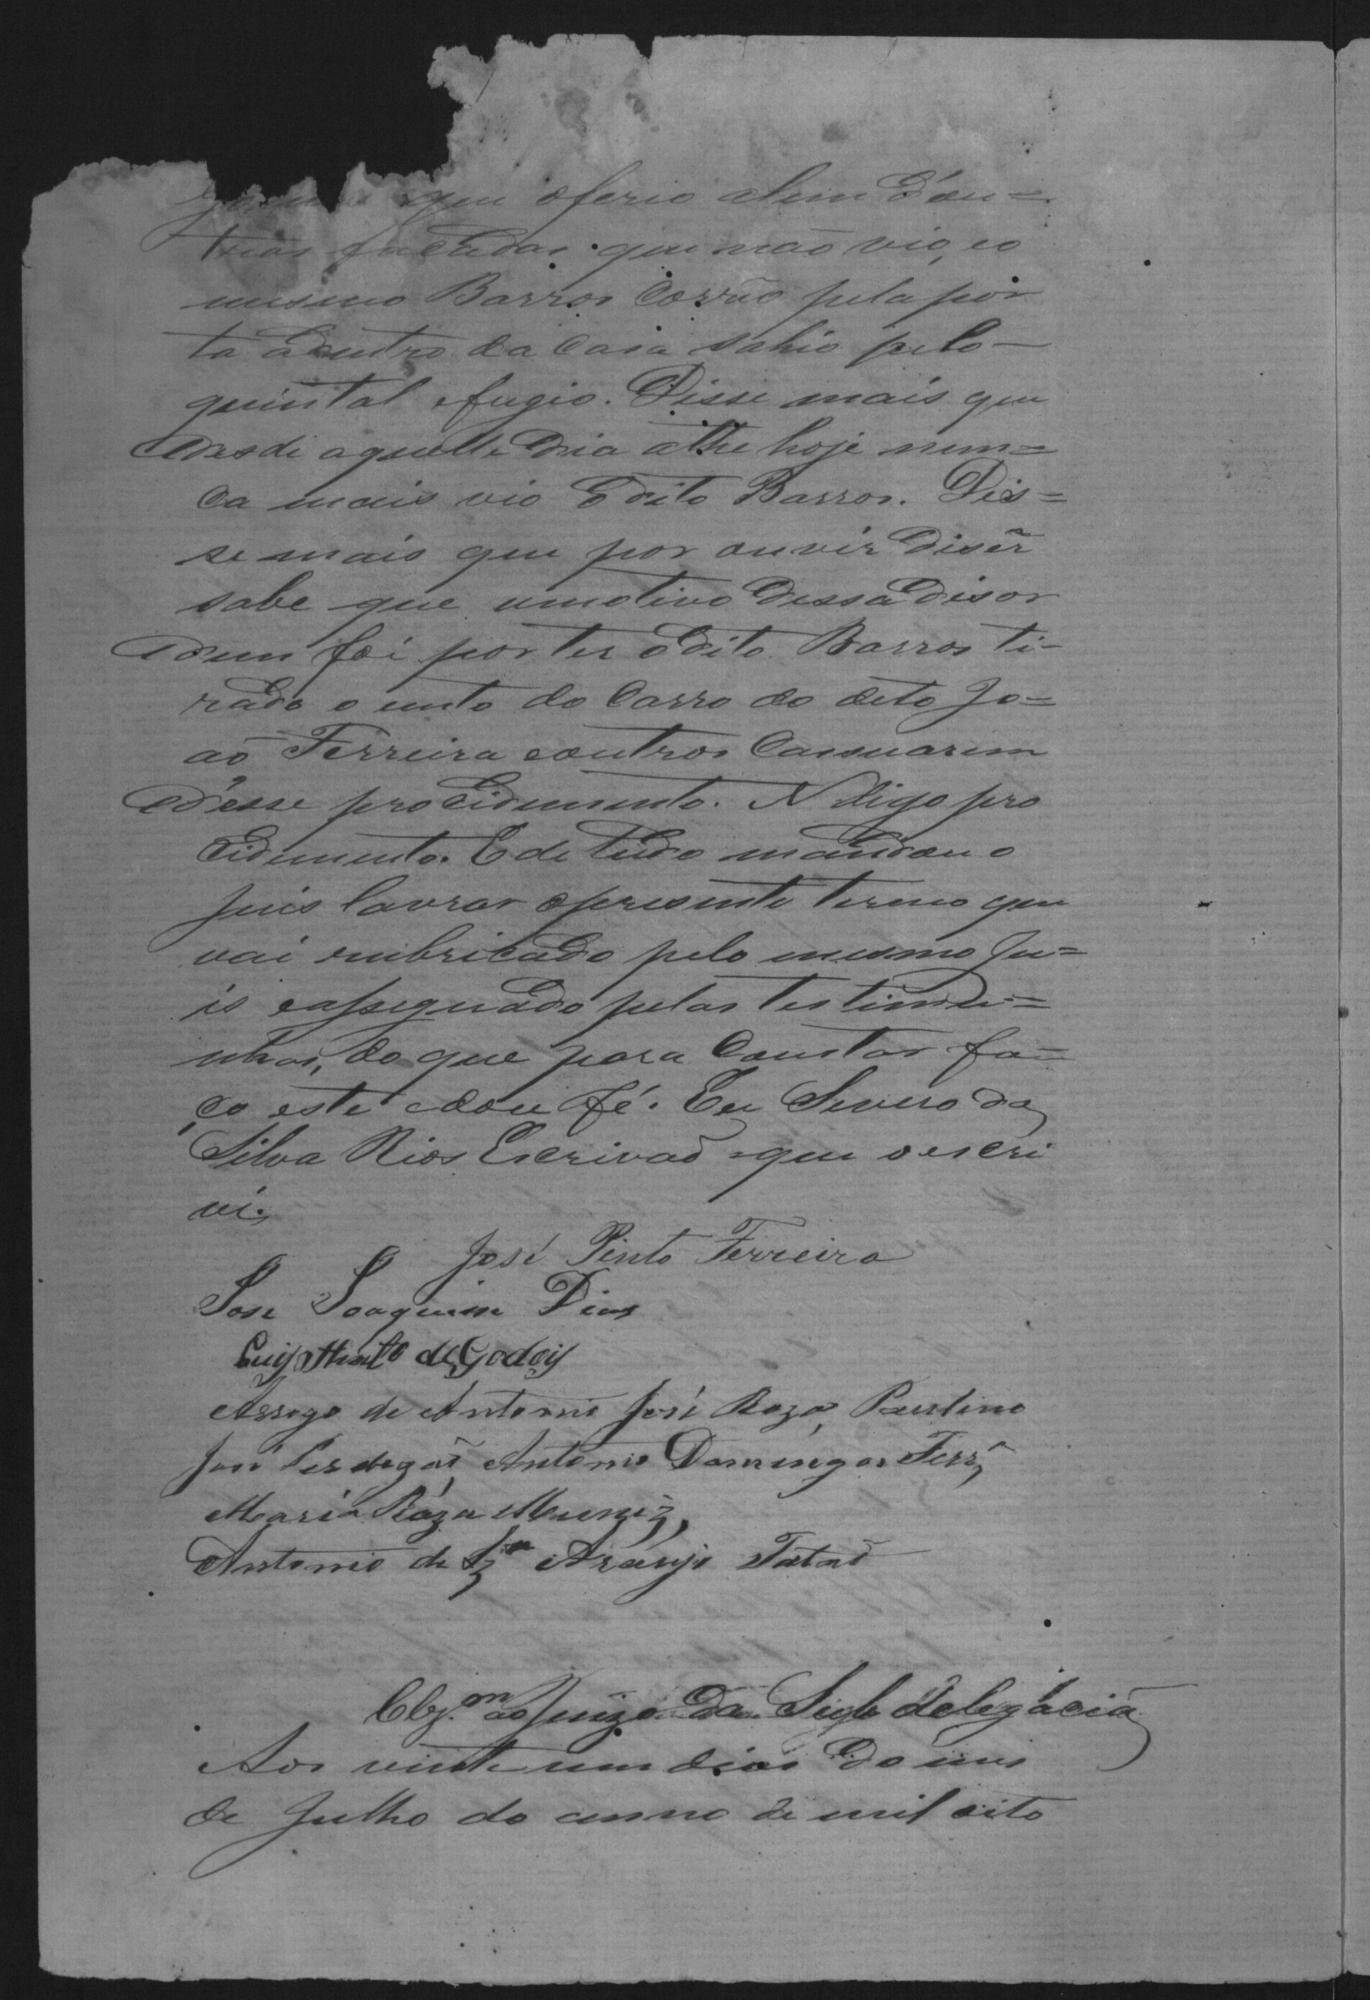 que oferio alem d'ou=
tras facadas que não vio, eo
mesmo Barros Corrêo pela por
ta adentro da Casa sahio pelo
quintal efugio. Disse mais que
desdi aquelle dia athe hoje nun=
ca mais vio odito Barros. Dis=
se mais que por ouvir disêr
sabe que umotivo dessa disor
dem foi por ter odito Barros ti-
rado o unto do Carro do dito Jo=
aõ Ferreira eoutros
d'esse procidimento. N digo pro
cidimento. E de tudo mandou o
Juis lavrar opresente termo que
vai rubricado pelo mesmo Ju=
is eassignado pelas testimu=
nhas, do que para Constar fa=
ço este edou fé. Eu Severo da
Silva Rios Escrivaõ que oescri
vi.
José Pinto Ferreira
Jose Joaquim Dias
de Godoiy
Arrogo de Antonio José Roza, Paulino
José Antonio Domingos Ferrª
Maria Roza Muniz,
Antonio de Araujo
ao Juizo da Subdelegacia
Aos vinte um dias do mes
de Julho do anno de mil oito